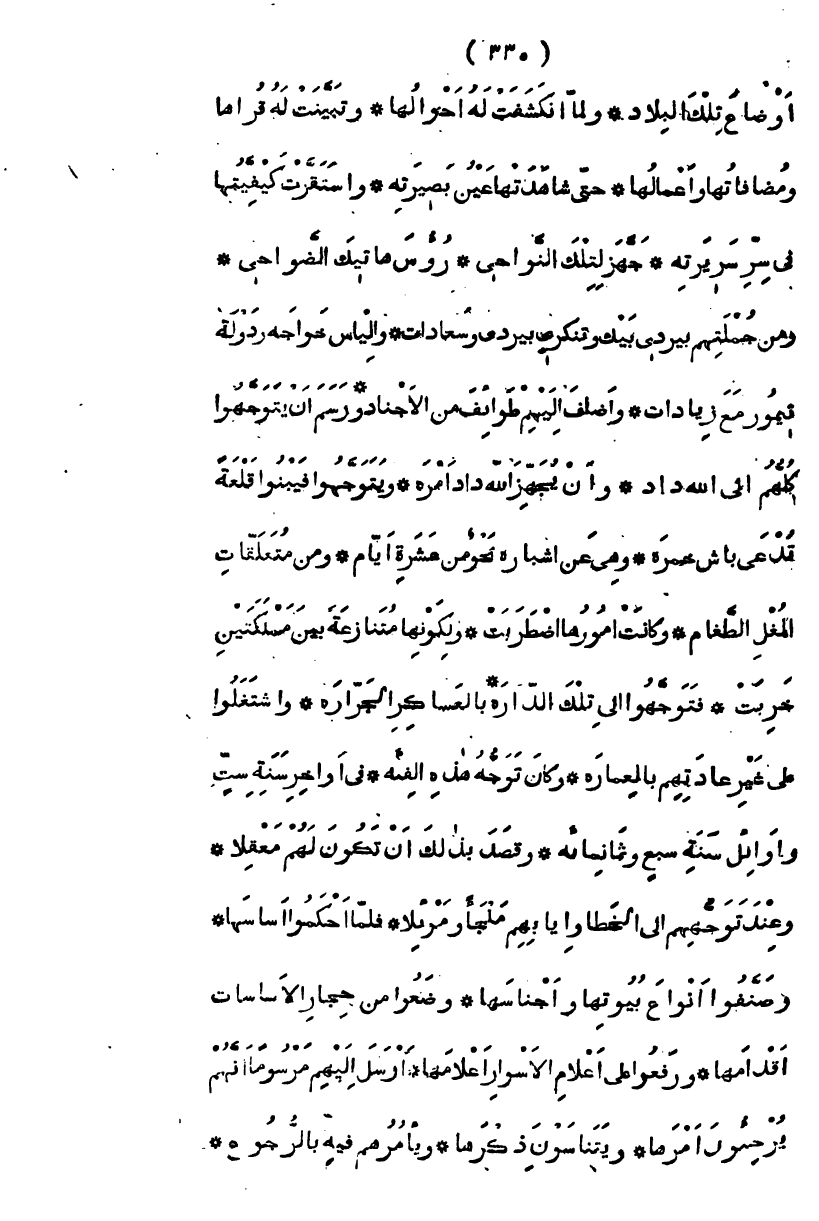 ( ٣٣٠ )
أَوْضاعُ تِلْكَ البِلاد * ولمّا انْكَشَفَتْ لَهُ أَحْوالُها * وتَبَيَّنَتْ لَهُ قُراها
ومُضافاتُها وأَعْمالُها * حتّى شاهَدَتْها عَيْنُ بَصِيرَتِه * واسْتَقَرَّتْ كَيْفِيَّتُها
فى سِرِّ سَرِيرَتِه * جَهَّزَ لِتِلْكَ النَّواحِى * رُؤُسَ هاتِيكَ الضَّواحِى *
ومن جُمْلَتِهم بيردى بَيْك وتنكرى بيردى وسُعادات * والْياس خَواجَه ردَوْلَة
تِيمُور مَعَ زِيادات * وأَضافَ إِلَيْهِم طَوائِفَ من الأَجْناد * ورَسَمَ أَنْ يَتَوَجَّهُوا
كُلُّهُم الى الله داد * وأَنْ يُجَهِّزَ الله داد أَمْرَه * ويَتَوَجَّهُوا فَيَبْنُوا قَلْعَةً
تُدْعَى باش خمرَة * وهى عَن اشباره نَحْوٌ من عَشَرَةِ أَيّام * ومن مُتَعَلَّقاتِ
المُغْلِ الطَّغام * وكانَتْ امُورُها اضْطَرَبَتْ * ولِكَوْنِها مُتَنازعَةً بينَ مَمْلَكَتَيْنِ
خَرِبَتْ * فَتَوَجَّهُوا الى تِلْكَ الدّارَه * بالعَساكِرِ الجَرّارَه * واشْتَغَلُوا
على غَيْرِ عادَتِهِم بالعِمارَه * وكانَ تَوَجُّهُ هٰذِهِ الفِئَه * فى أَواخِرِ سَنَةِ سِتٍّ
وأَوائِلِ سَنَةِ سبعٍ وثَمانِمائَه * وقصَدَ بذٰلكَ أَنْ تَكُونَ لَهُم مَعْقِلا *
وعِنْدَ تَوَجُّهِهِم الى الخَطا وإيابِهِم مَلْجَأً ومَوْئِلا * فلمّا أَحْكَمُوا أساسَها *
وصَنَّفُوا أَنْواعَ بُيُوتِها وأَجْناسَها * وضَعُوا من حِجارِ الأَساسات
أَقْدامَها * ورفَعُوا على أَعْلامِ الأَسْوارِ أَعْلامَها * أَرْسَلَ إِلَيْهِم مَرْسُومًا أَنَّهُمْ
يُرْجِئُونَ أَمْرَها * ويَتَناسَوْنَ ذِكْرَها * ويأمُرُهم فيهِ بالرُّجُوع *